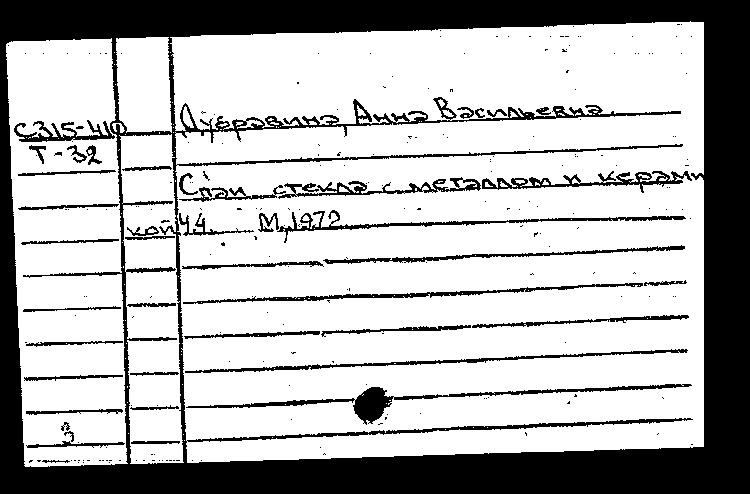 С315-410 Дубравина, Анна Васильевна.
Т-32
Спаи стекла с металлом и керами
кой Ч.4. М., 1972
3